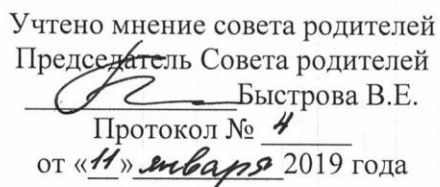 Учтено мнение совета родителей
Председатель Совета родителей
Быстрова В.Е.
Протокол № 4
от «11» января 2019 года